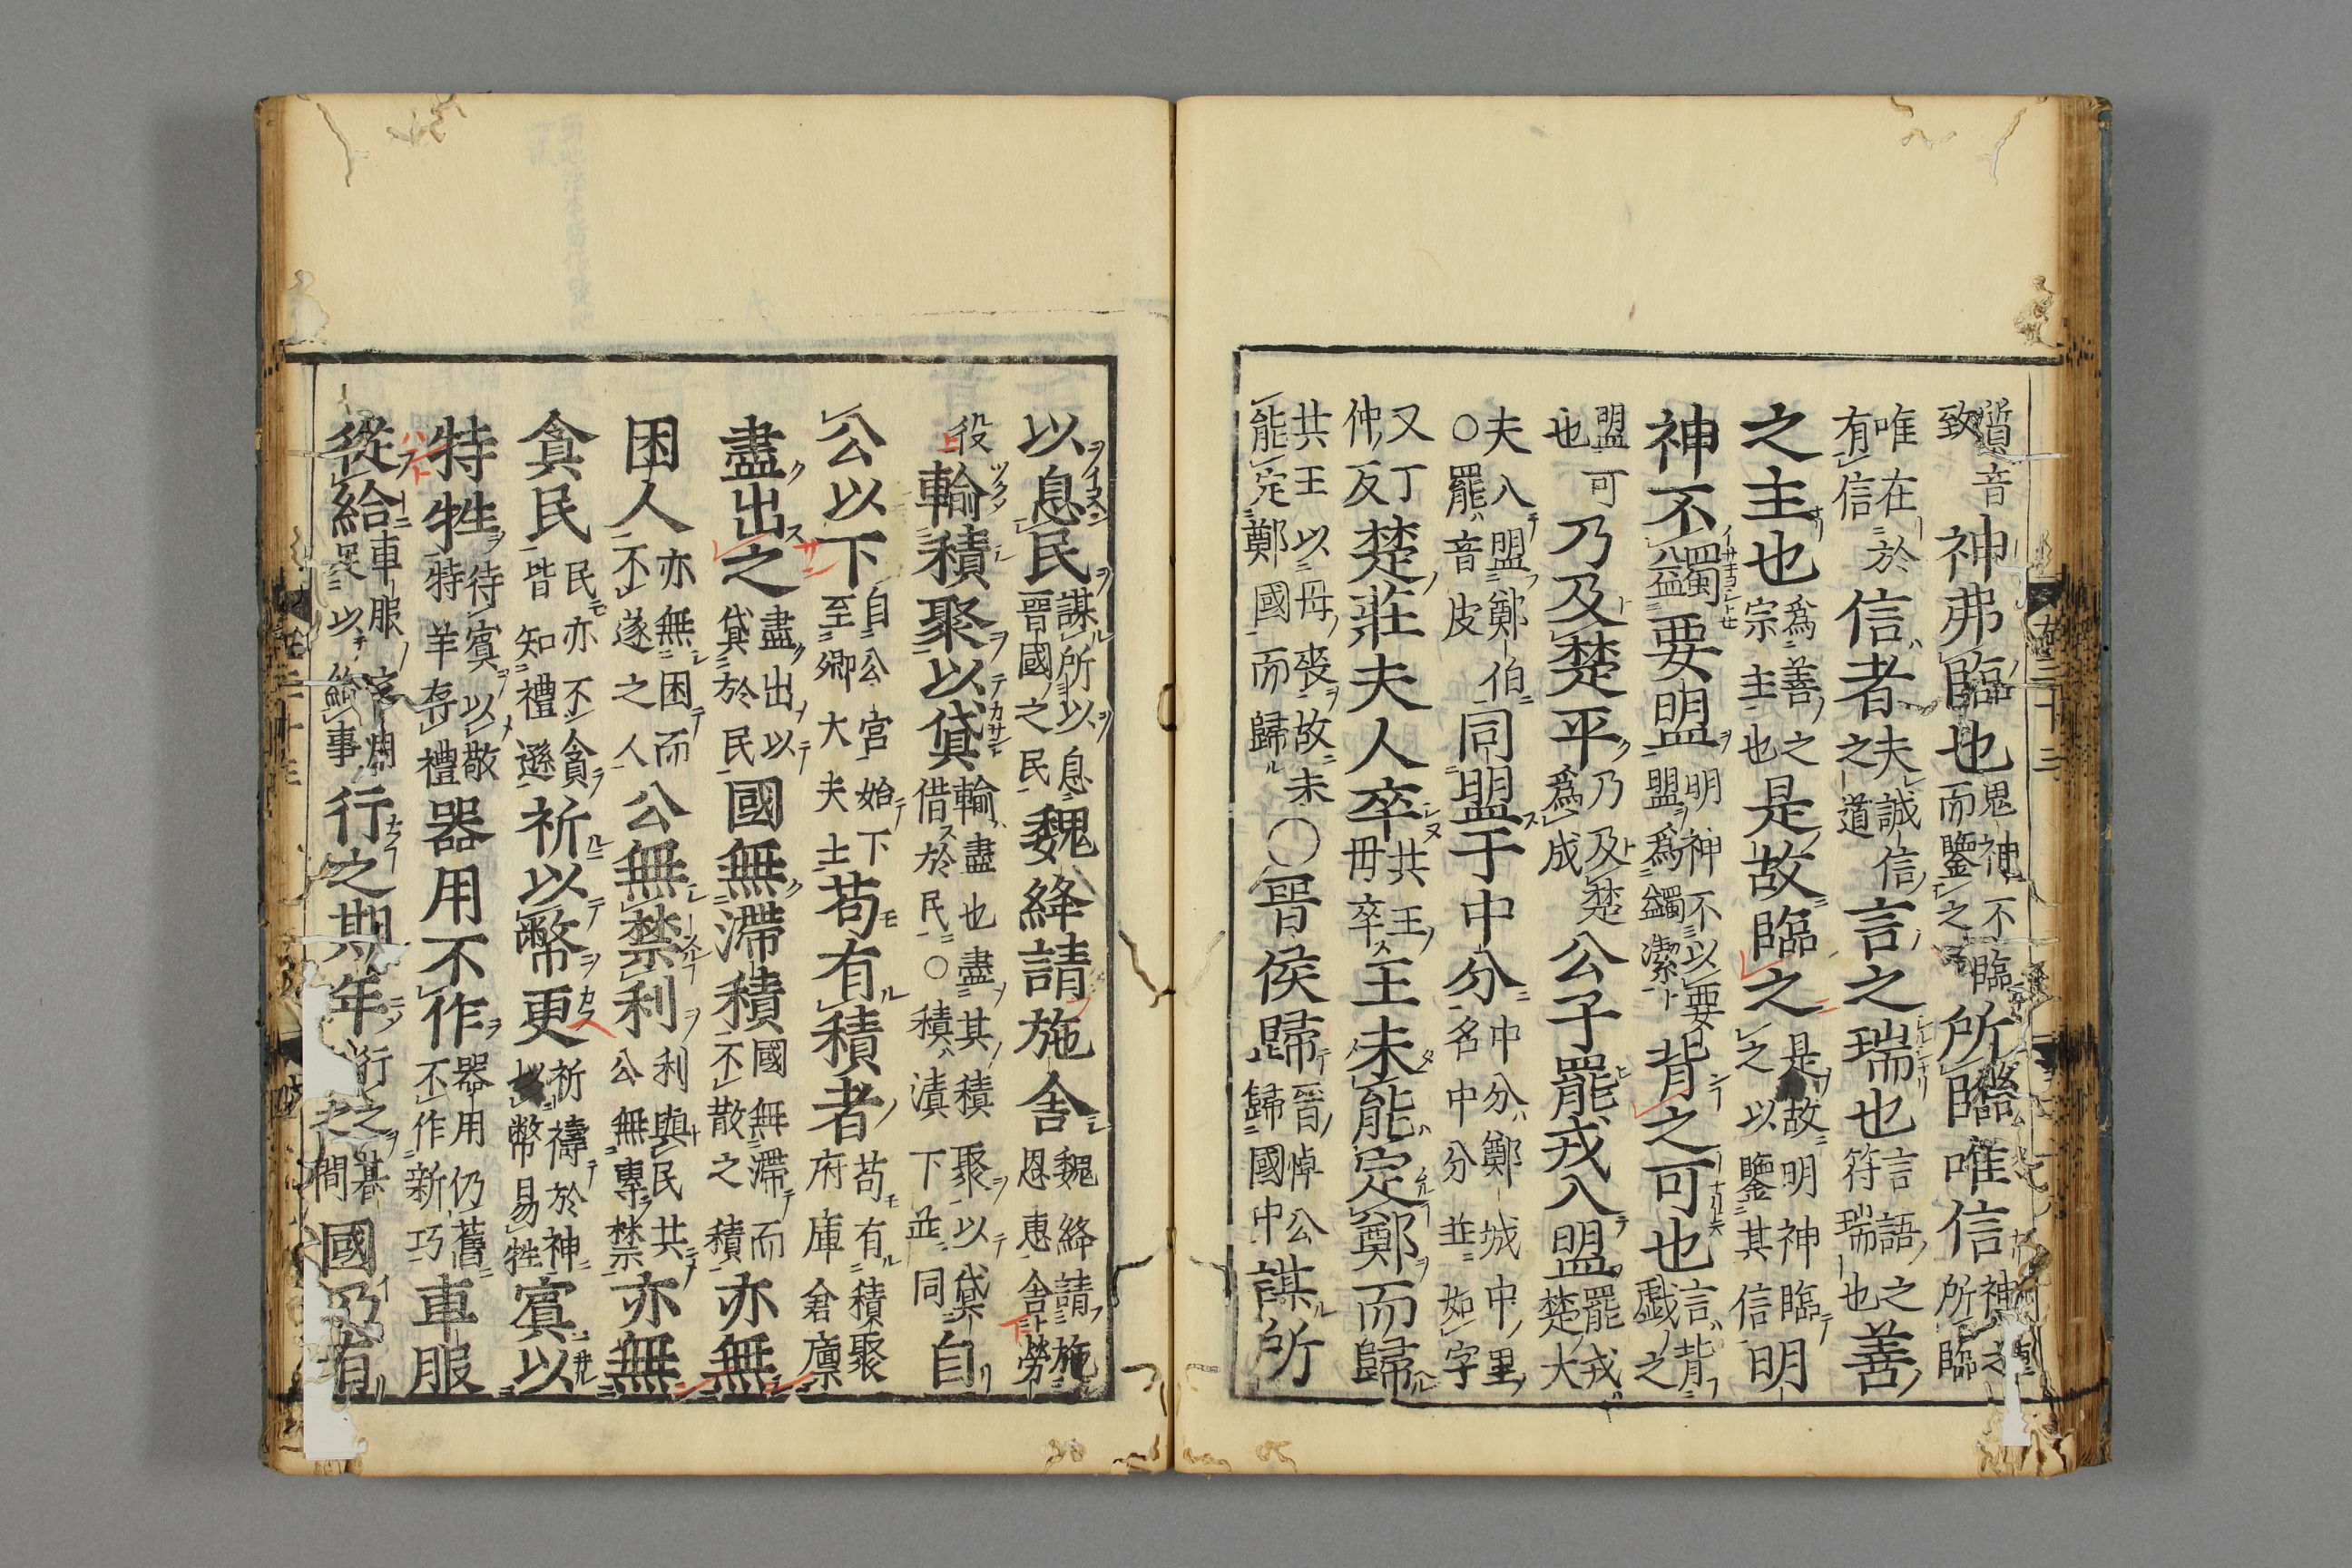 質音致神弗臨也鬼神不臨而鑒之所臨唯信神之所臨
唯在於有信信者夫誠信之道言之瑞也言語之符瑞也善
之主也爲善之宗主也是故臨之是故明神臨之以鑒其信明
神不蠲要盟明神不以要盟爲蠲潔背之可也言背戲之
盟可也乃及楚平乃及楚爲成公子罷戎入盟罷戎楚大
夫入盟鄭伯○罷音皮同盟于中分中分鄭城中里名中分並如字
又丁仲反楚莊夫人卒共王母卒王未能定鄭而歸
共王以母喪故未能定鄭國而歸○晉侯歸晉悼公歸國中謀所
以息民謀所以息晉國之民魏絳請施舍魏絳請施恩惠舍勞
役輸積聚以貸輸盡也盡其積聚以貸借於民○積漬下並同自
公以下自公宮始下至卿大夫士苟有積者苟有積聚府庫倉廩
盡出之盡出以貸於民國無滯積國無滯而不散之積亦無
困人亦無困而不遂之人公無禁利利與民共公無專禁亦無
貪民民亦不貪皆知禮遜祈以幣更祈禱於神以幣易牲賓以
特牲待賓以特羊存禮器用不作器用仍舊不作新巧車服
從給車服足以給事行之期年行之朞之間國乃有